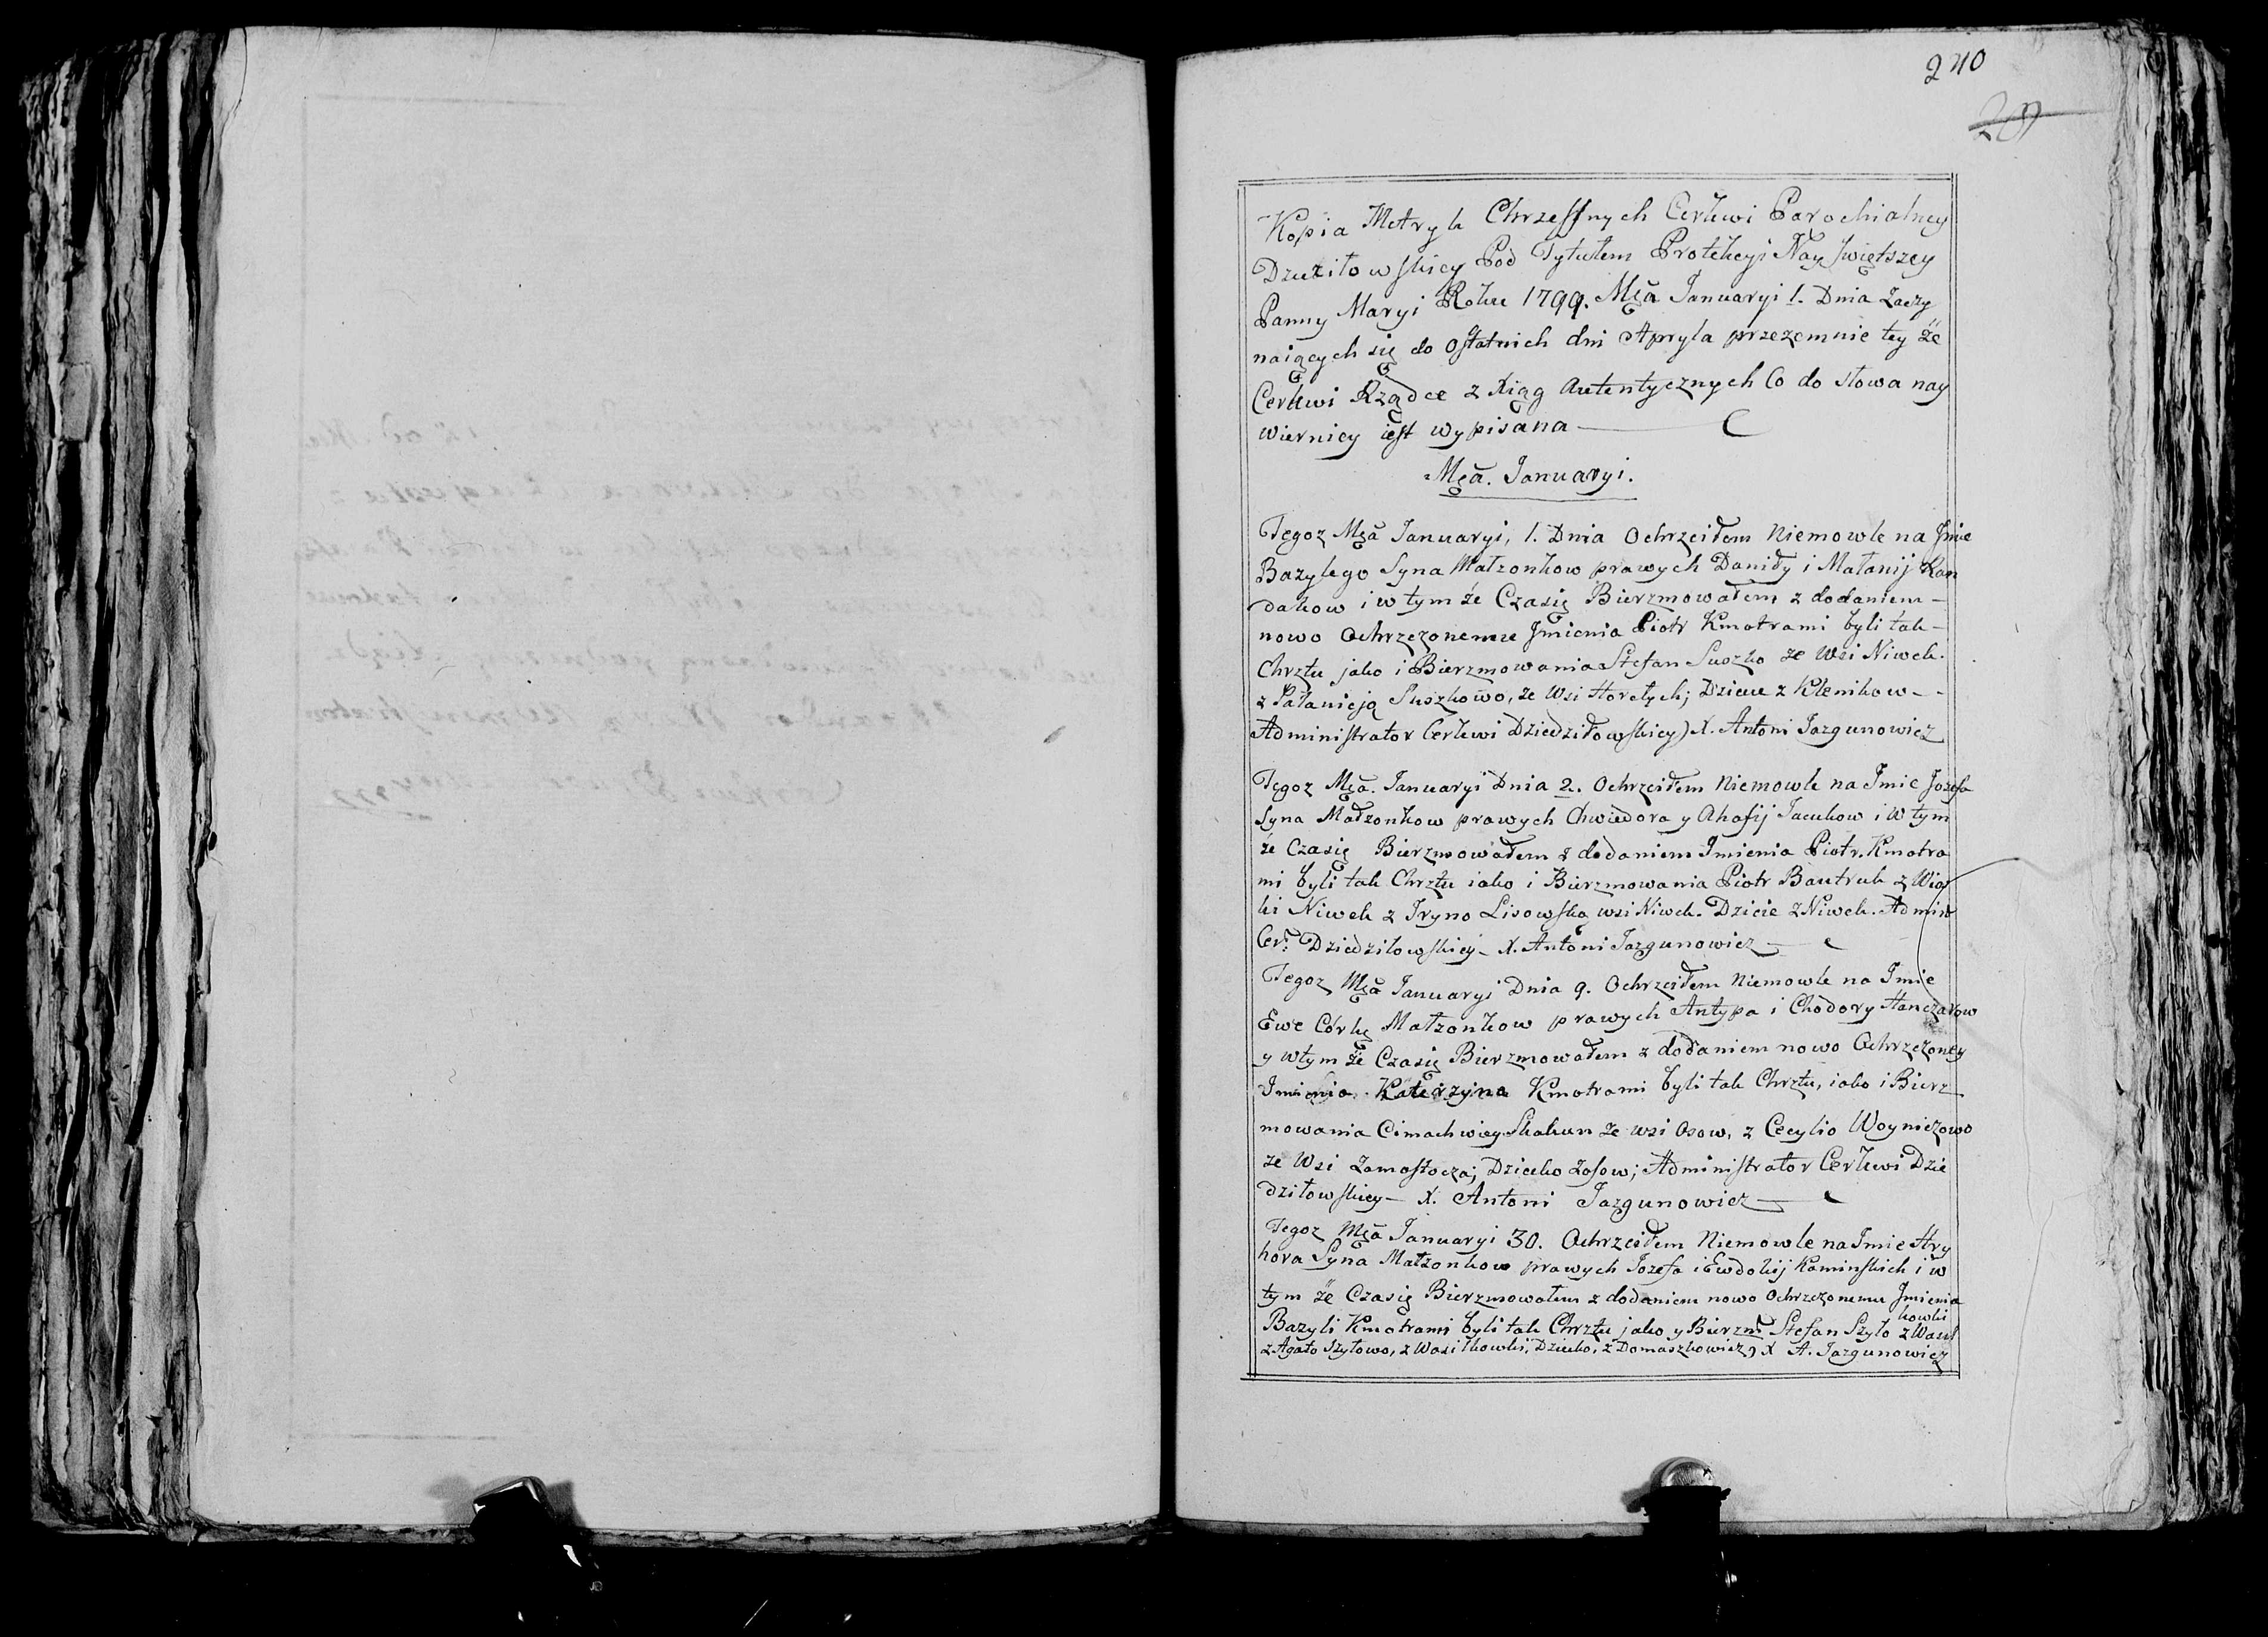 240
20
Kopia Metryk Chrzesnych Cerkwi Parochialney
Dzuziłowskiey Pod Tytułem Protekcyi Nayswiętszey
Panny Maryi Roku 1799. Mca Januaryi 1. Dnia Zaczy
naiących się do ostatnich dni Apryla przezemnie tey że
Cerkwi Rządce z Xiąg Autentycznych Co do słowa nay
wierniey iest wypisana
Mca. Januaryi.
Tegoz Mca Januaryi, 1. Dnia Ochrzciłem Niemowle na Jmie
Bazylego Syna Małzonkow prawych Daniły i Małanij Kon
dakow i w tym że Czasię Bierzmowałem z dodaniem
nowo Ochrzczonemu Jmienia Piotr Kmotrami byli tak
Chrztu jako i Bierzmowania Stefan Suszko ze Wsi Niwek
z Pałanieją Suszkowo, ze Wsi Horełych; Dziecie z Klenikow
Administrator Cerkwi Dziedziłowskiey) X. Antoni Jazgunowicz
Tegoz Mca. Januaryi Dnia 2. Ochrzciłem Niemowle na Jmie Jozefa
Syna Małzonkow prawych Chwiedora y Ahafij Jacukow i w tym
że Czasię Bierzmowałem z dodaniem Jmienia Piotr. Kmotra
mi byli tak Chrztu iako i Bierzmowania Piotr Bautruk z Wios
ki Niwek z Jryno Lisowską wsi Niwek. Dziecie z Niwek. Admin
Cer: Dziedziłowskiey X. Antoni Jazgunowicz
Tegoz Mca Januaryi Dnia 9. Ochrzciłem Niemowle na Jmie
Ewe Córkę Małzonkow prawych Antypa i Chodory Hanczarow
y wtym że Czasię Bierzmowałem z dodaniem nowo Ochrzczoney
Jmienia Katerzyna Kmotrami byli tak Chrztu, iako i Bierz
mowania Cimachwiey Skakun ze wsi Osow, z Cecylio Woyniczowo
ze Wsi Zamostocza; Dziecko zosow; Administrator Cerkwi Dzie
dziłowskiey X. Antoni Jazgunowicz
Tegoz Mca Januaryi 30. Ochrzciłem Niemowle na Jmie Hry
hora Syna Małzonkow prawych Jozefa i Ewdokij Kaminskich i w
tym że Czasię Bierzmowałem z dodaniem nowo Ochrzczonemu Jmienia
Bazyli Kmotrami byli tak Chrztu jako y Bierzm Stefan Szyło z Wasil
kowki
z Agato Szyłowo, z Wasilkowki, Dziecko, z Domaszkowicz) X A. Jazgunowicz